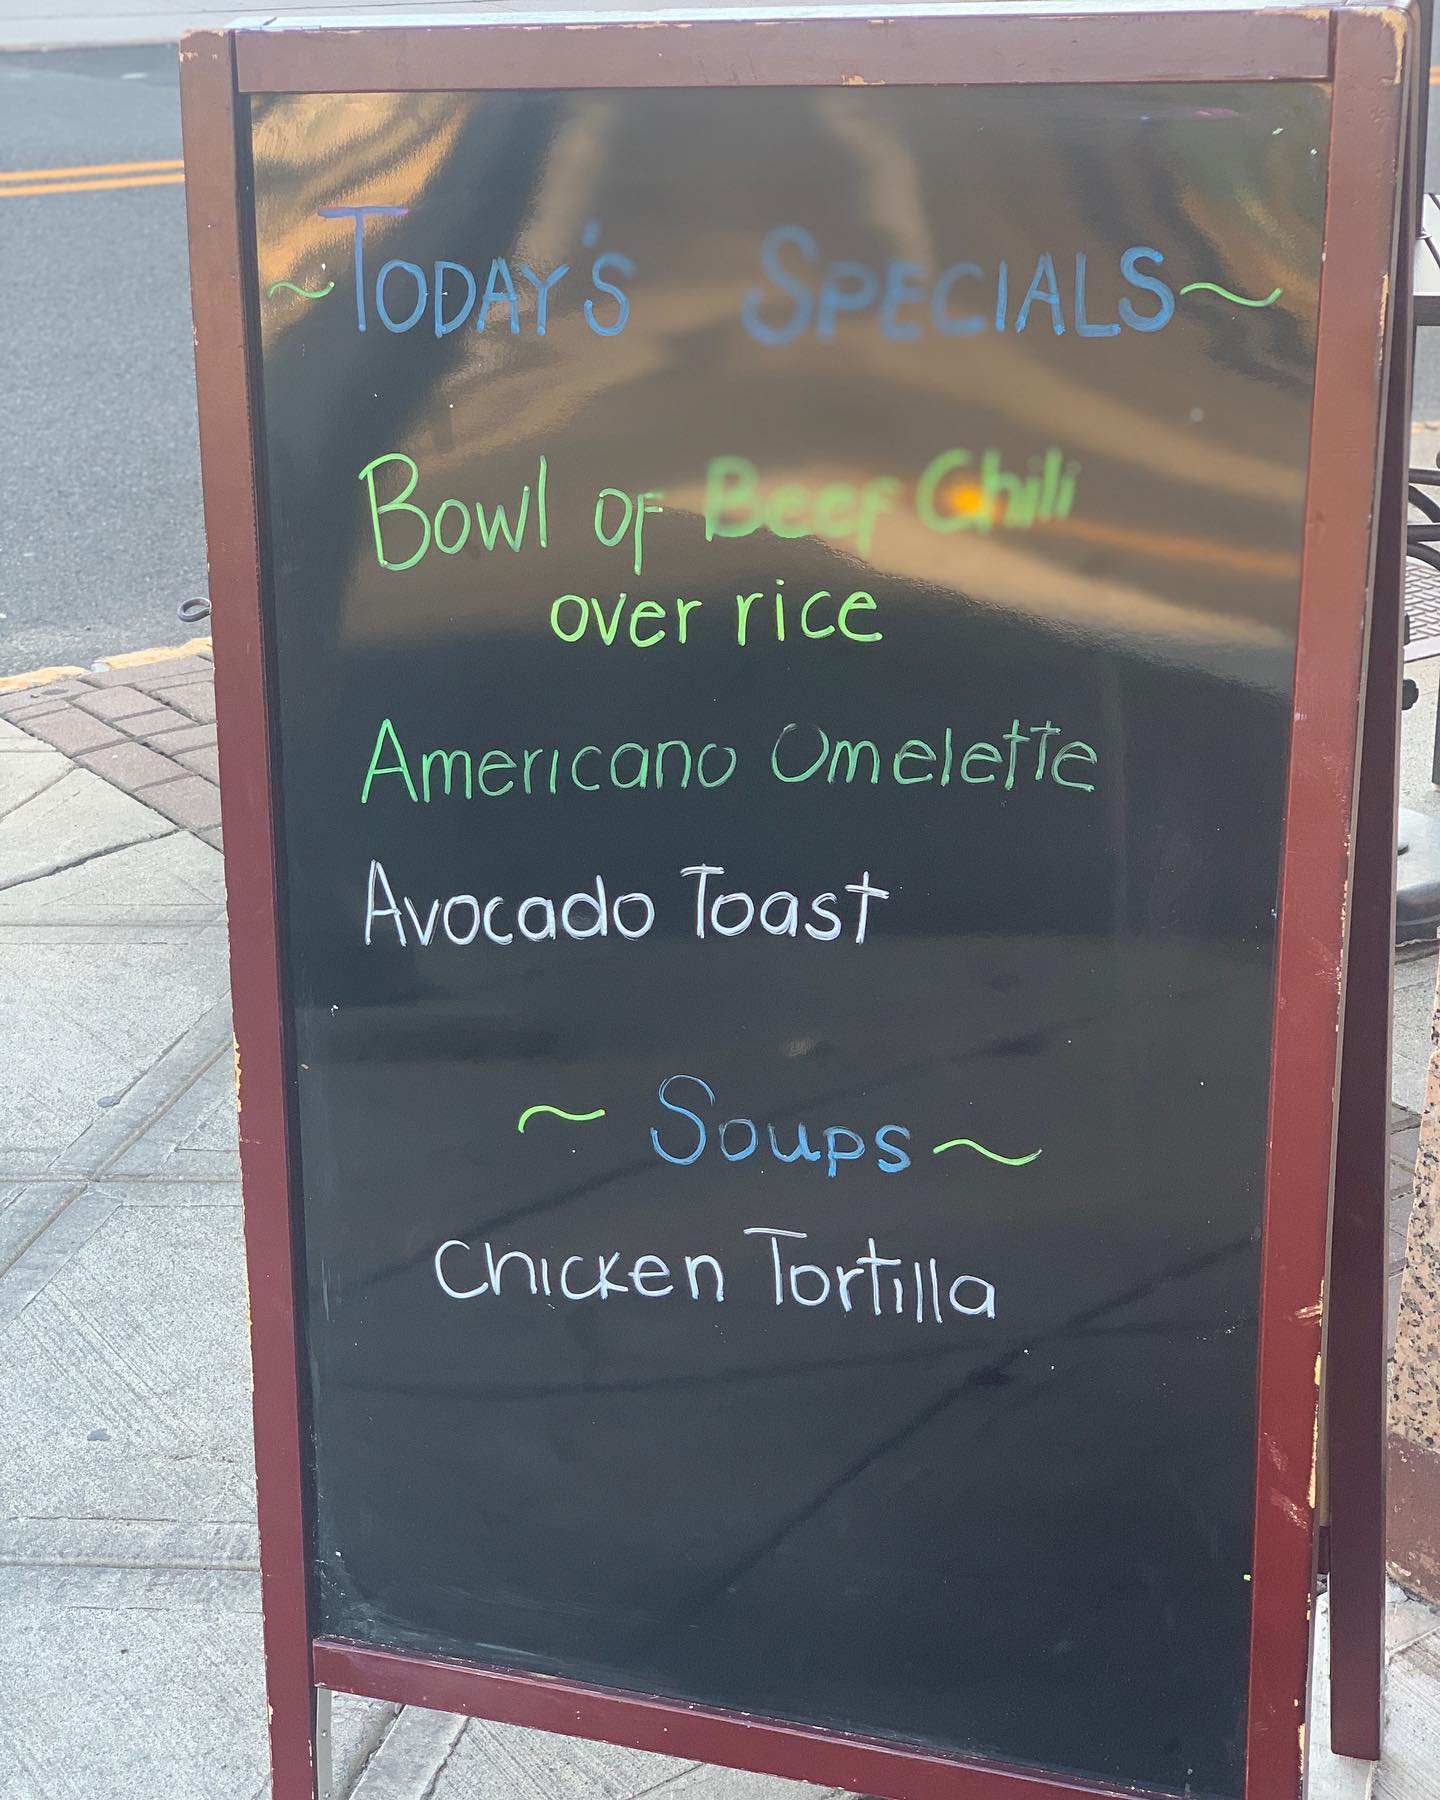 ~Today's Specials~
Bowl of Beef Chili
over rice
Americano Omelette
Avocado Toast
~ Soups ~
Chicken Tortilla